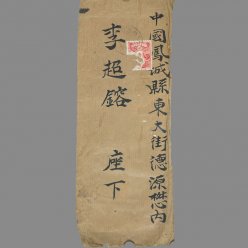 中國鳳城縣東大街德源懋內
李超鎔 座下